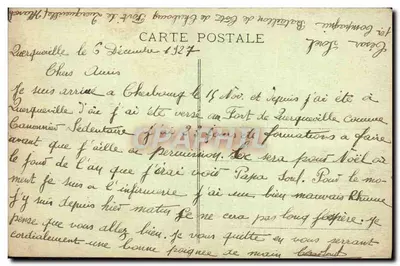 1re Compagnie
Bataillon de Côte de Cherbourg Fort de Querqueville
CARTE POSTALE
Querqueville le 6 Décembre 1927
Chers Amis
Je suis arrivé a Cherbourg le 15 Nov. et depuis j'ai été à
Querqueville d'où j'ai été versé au Fort de Querqueville comme
Canonnier Sedentaire formations a faire
avant que j'aille de permission. sera pour Noël où
le jour de l'an que j'irai voir Papa Soul. Pour le mo-
ment Je suis a l'infirmerie j'ai eu bien mauvais Rhume
J'y suis depuis hier matin ce ne era pas long j'espère. Je
pense que vous allez bien. Je vous quitte en vous serrant
cordialement une bonne poignée de main